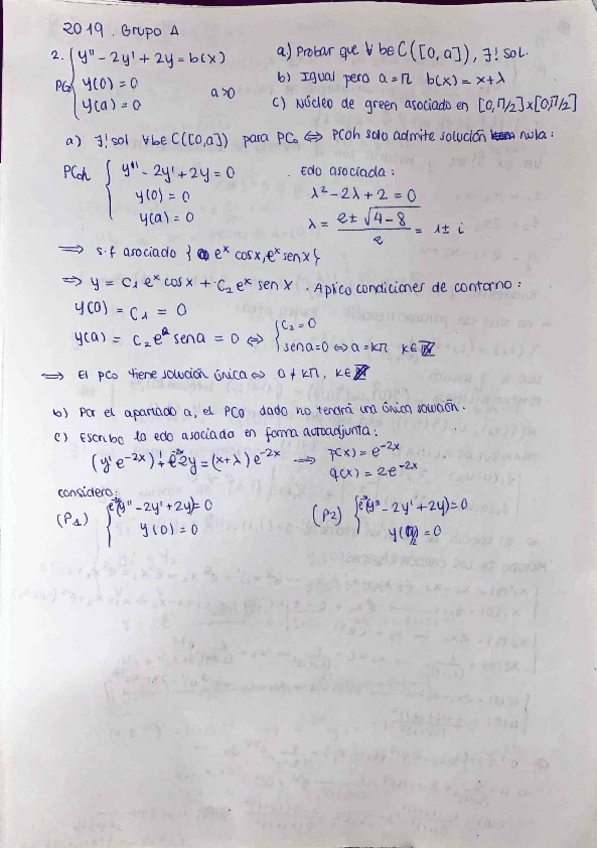 2019. Grupo A
2. { y'' - 2y' + 2y = b(x)   a) Probar que ∀ b∈C([0,a]), ∃! sol.
PCo { y(0) = 0   a>0   b) Igual pero a = π   b(x) = x+λ
y(a) = 0   c) Núcleo de green asociado en [0,π/2]x[0,π/2]
a) ∃! sol ∀b∈C([0,a]) para PCo ⟺ PCoh solo admite solución nula:
PCoh { y'' - 2y' + 2y = 0   Edo asociada:
y(0) = 0   λ² - 2λ + 2 = 0
y(a) = 0   λ = (2 ± √(4-8))/2 = 1 ± i
⟹ s.f asociado { eˣ cosx, eˣ senx}
⟹ y = C₁ eˣ cosx + C₂ eˣ sen x. Aplico condiciones de contorno:
y(0) = C₁ = 0
y(a) = C₂eᵃ sena = 0 ⟺ { C₂ = 0
sena = 0 ⟺ a = kπ   k∈
⟹ El PCo tiene solución única ⟺ a ≠ kπ, k∈
b) Por el apartado a, el PCo dado no tendrá una única solución.
c) Escribo la edo asociada en forma autoadjunta:
(y'e⁻²ˣ)' + e⁻²ˣ2y = (x+λ)e⁻²ˣ ⟹ p(x) = e⁻²ˣ
q(x) = 2e⁻²ˣ
considero:
(P₁) { e⁻²ˣ(y'' - 2y' + 2y) = 0   (P₂) { e⁻²ˣ(y'' - 2y' + 2y) = 0
y(0) = 0   y(π/2) = 0